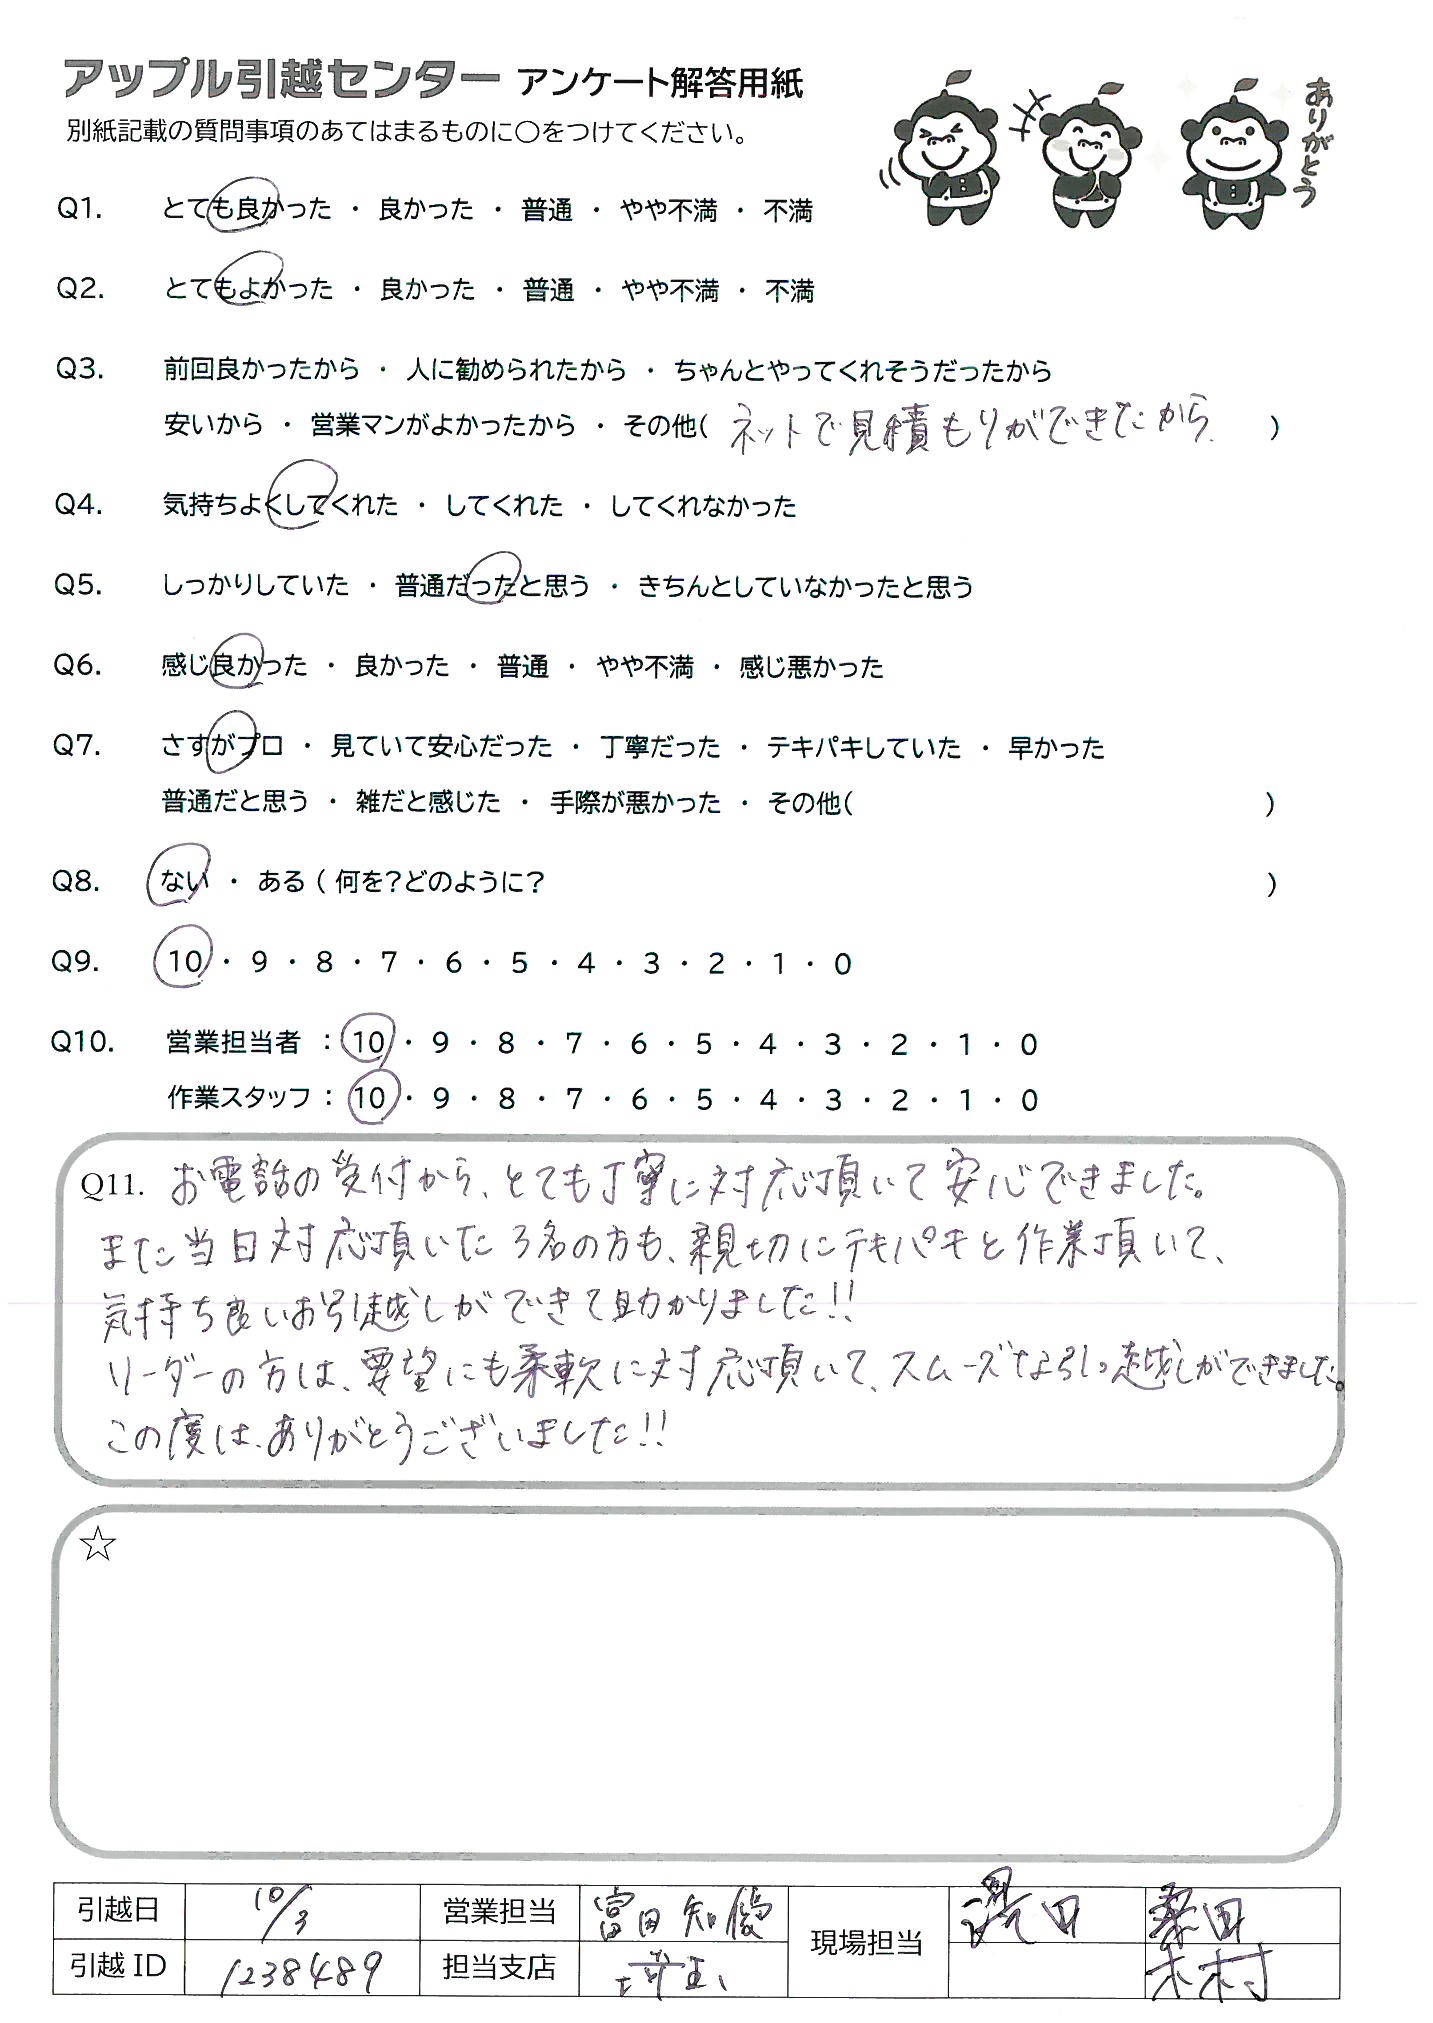 アップル引越センター アンケート解答用紙
別紙記載の質問事項のあてはまるものに〇をつけてください。
ありがとう
Q1. とても良かった ・ 良かった ・ 普通 ・ やや不満 ・ 不満
Q2. とてもよかった ・ 良かった ・ 普通 ・ やや不満 ・ 不満
Q3. 前回良かったから ・ 人に勧められたから ・ ちゃんとやってくれそうだったから
安いから ・ 営業マンがよかったから ・ その他( ネットで見積もりができたから. )
Q4. 気持ちよくしてくれた ・ してくれた ・ してくれなかった
Q5. しっかりしていた ・ 普通だったと思う ・ きちんとしていなかったと思う
Q6. 感じ良かった ・ 良かった ・ 普通 ・ やや不満 ・ 感じ悪かった
Q7. さすがプロ ・ 見ていて安心だった ・ 丁寧だった ・ テキパキしていた ・ 早かった
普通だと思う ・ 雑だと感じた ・ 手際が悪かった ・ その他( )
Q8. ない ・ ある ( 何を?どのように? )
Q9. 10 ・ 9 ・ 8 ・ 7 ・ 6 ・ 5 ・ 4 ・ 3 ・ 2 ・ 1 ・ 0
Q10. 営業担当者 : 10 ・ 9 ・ 8 ・ 7 ・ 6 ・ 5 ・ 4 ・ 3 ・ 2 ・ 1 ・ 0
作業スタッフ : 10 ・ 9 ・ 8 ・ 7 ・ 6 ・ 5 ・ 4 ・ 3 ・ 2 ・ 1 ・ 0
Q11. お電話の受付から、とても丁寧に対応頂いて安心できました。
また当日対応頂いた3名の方も、親切にテキパキと作業頂いて、
気持ち良いお引越しができて助かりました!!
リーダーの方は、要望にも柔軟に対応頂いて、スムーズなお引っ越しができました。
この度は、ありがとうございました!!
☆
引越日 10/3 営業担当 富田 現場担当 湯田 桑田
引越ID 1238489 担当支店 埼玉 木村